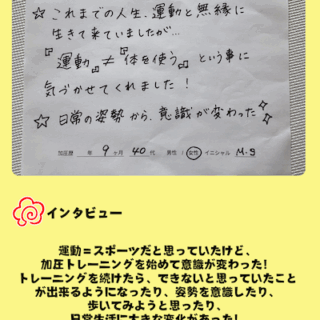 ☆これまでの人生、運動と無縁に
生きて来ていましたが…
『運動』≠『体を使う』という事に
気づかせてくれました!
☆日常の姿勢から、意識が変わった
加圧歴 年 9ヶ月 40代 男性 / 女性 イニシャル M.S
インタビュー
運動=スポーツだと思っていたけど、
加圧トレーニングを始めて意識が変わった!
トレーニングを続けたら、できないと思っていたこと
が出来るようになったり、姿勢を意識したり、
歩いてみようと思ったり、
日常生活に大きな変化があった!